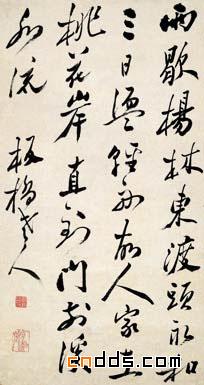 雨歇楊林東渡頭永和
三日盪輕舟故人家在
桃花岸直到門前溪
水流 板橋老人
cndds.com